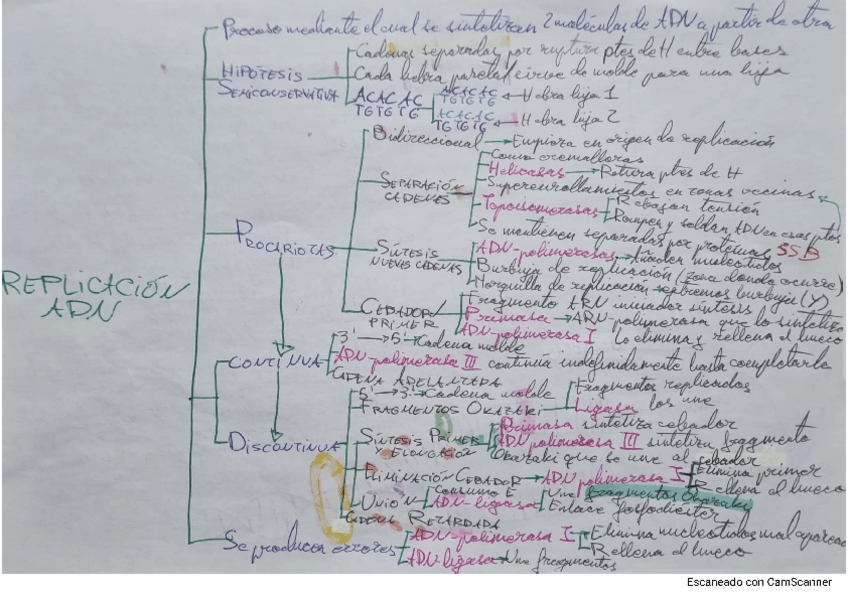 Proceso mediante el cual se sintetizan 2 moléculas de ADN a partir de otra
HIPÓTESIS SEMICONSERVATIVA
Cadenas separadas por ruptura ptes de H entre bases
Cada hebra parental sirve de molde para una hija
ACACAC
TGTGTG
ACACAC
TGTGTG
Hebra hija 1
ACACAC
TGTGTG
Hebra hija 2
REPLICACIÓN ADN
PROCARIOTAS
Bidireccional → Empieza en origen de replicación
SEPARACIÓN CADENAS
Como cremalleras
Helicasas → Rotura ptes de H
Superenrollamientos en zonas vecinas
Topoisomerasas
Rebajan tensión
Rompen y soldan ADN en esos ptos
Se mantienen separadas por proteínas SSB
SÍNTESIS NUEVAS CADENAS
ADN-polimerasas → Añaden nucleótidos
Burbuja de replicación (zona donde ocurre)
Horquilla de replicación → extremos burbuja (Y)
CEBADOR/PRIMER
Fragmento ARN iniciador síntesis
Primasa → ARN-polimerasa que lo sintetiza
ADN-polimerasa I lo elimina y rellena el hueco
CONTINUA
3' → 5' → Cadena molde
ADN-polimerasa III continúa indefinidamente hasta completarla
CADENA ADELANTADA
DISCONTINUA
5' → 3' → Cadena molde
FRAGMENTOS OKAZAKI
Fragmentos replicados
Ligasa los une
SÍNTESIS PRIMER Y ELONGACIÓN
Primasa sintetiza cebador
ADN polimerasa III sintetiza fragmento
Okazaki que se une al cebador
ELIMINACIÓN CEBADOR → ADN polimerasa I
cebador
Elimina primer
Rellena el hueco
UNIÓN
CONSUMO E
ADN-ligasa
Une fragmentos Okazaki
Enlace fosfodiester
CADENA RETARDADA
Se producen errores
ADN-polimerasa I
Elimina nucleótidos mal
Rellena el hueco
ADN-ligasa → Une fragmentos
Escaneado con CamScanner